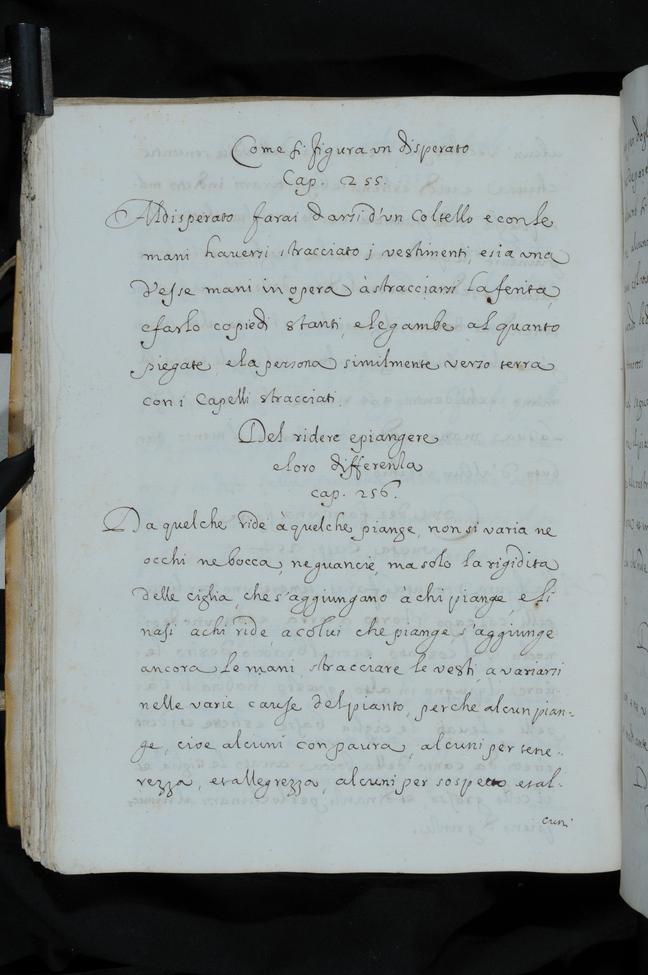 Come si figura un disperato
Cap. 255.
Al disperato farai darsi d'un Coltello e con le
mani haversi stracciato i vestimenti, e sia una
d'esse mani in opera à stracciarsi la ferita,
e farlo co piedi stanti, e le gambe al quanto
piegate e la persona similmente verzo terra
con i Capelli stracciati.
Del ridere e piangere
e loro differenza
cap. 256.
Da quelche ride a quelche piange, non si varia ne
occhi ne bocca, ne guancie, ma solo la rigidita
delle ciglia, che s'aggiungano à chi piange, e li
nasi a chi ride, a colui che piange s'aggiunge
ancora le mani, stracciare le vesti, a variarsi
nelle varie cause del pianto, perche alcun pian-
ge, cioe alcuni con paura, alcuni per tene-
rezza, et allegrezza, alcuni per sospetto et al-
cuni